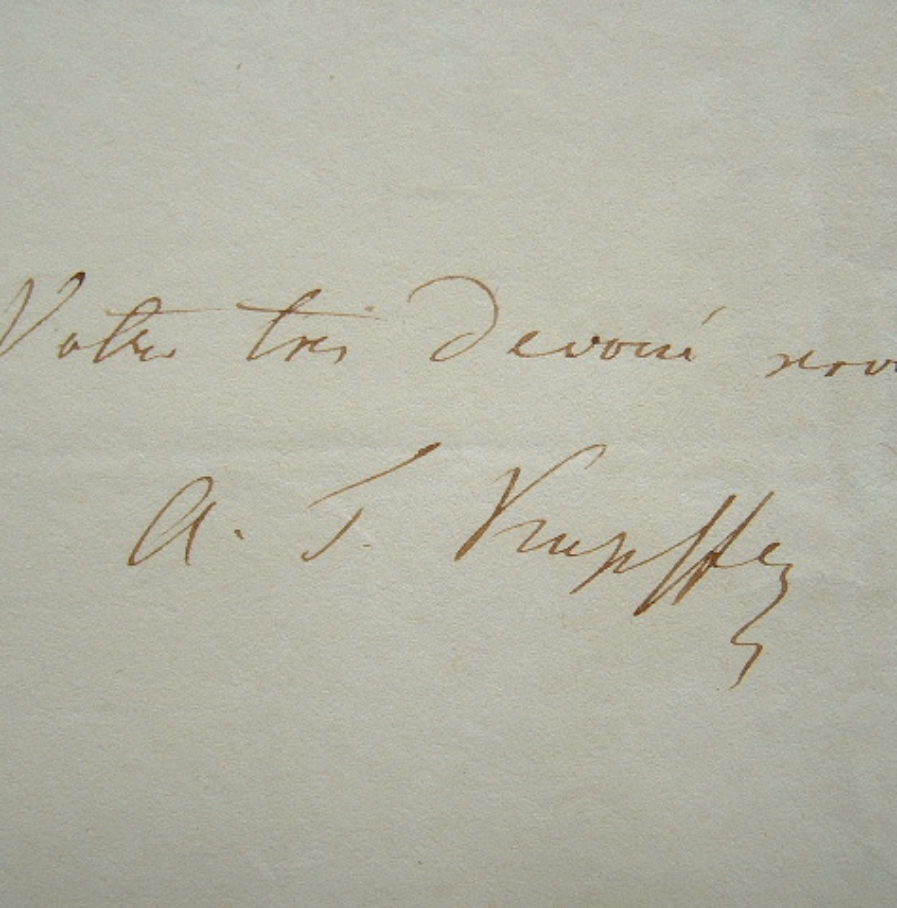 Votre très Devoué serv
A. T. Kupffer